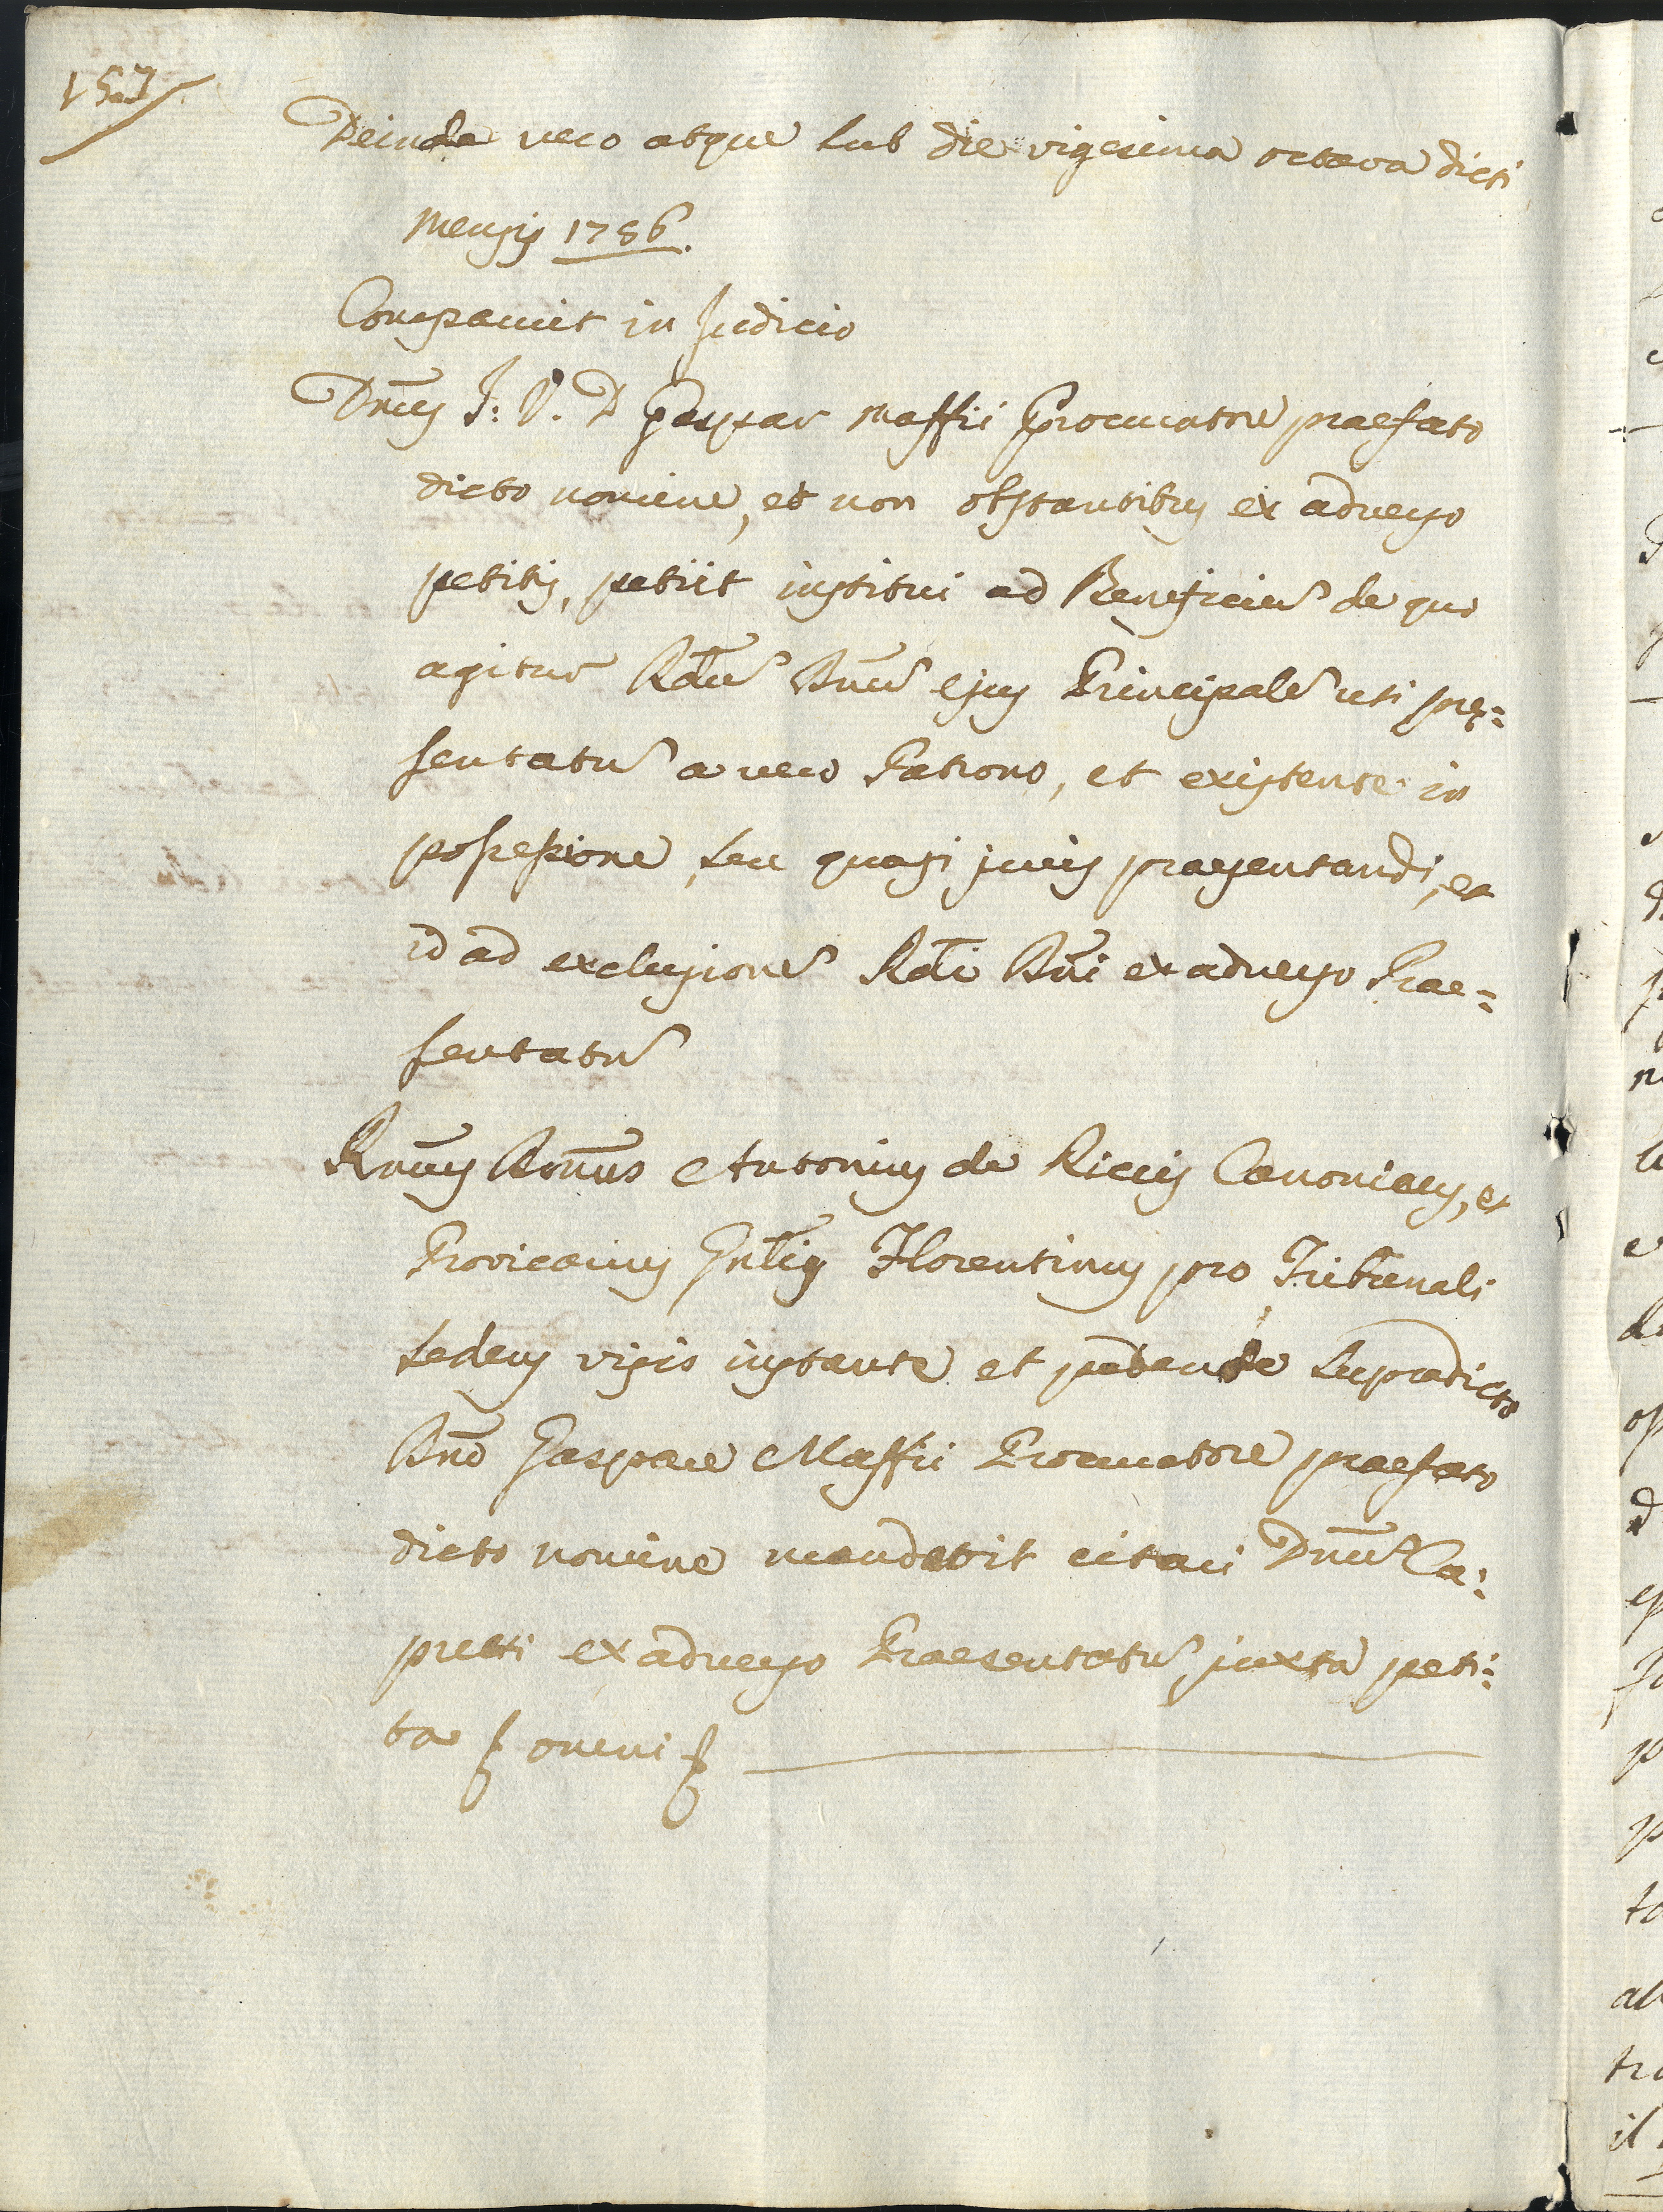 157
Deinde vero atque sub die vigesima octava dicti
Mensis 1786.
Comparuit in Judicio
Dnus J: V. D Gaspar Maffii Procuratore praefato
dicto nomine, et non obstantibus ex adverso
petitis, petiit institui ad Beneficiũ de quo
agitur Rdũ Dnũ ejus Principalẽ uti prę=
sentatũ a vero Patrono, et existente in
possessione, seu quasi juris praesentandi, et
id ad exclusionẽ Rdi Dni ex adverso Prae=
sentatũ
Rmus Dnus Antonius de Riccis Canonicus, et
Provicarius Gnlis Florentinus pro Tribunali
sedens visis instante et petente supradicto
Dno Gaspare Maffii Procuratore praefato
dicto nomine mandavit citari Dnũ Ca=
pretti ex adverso Praesentatũ juxta peti=
ta omni